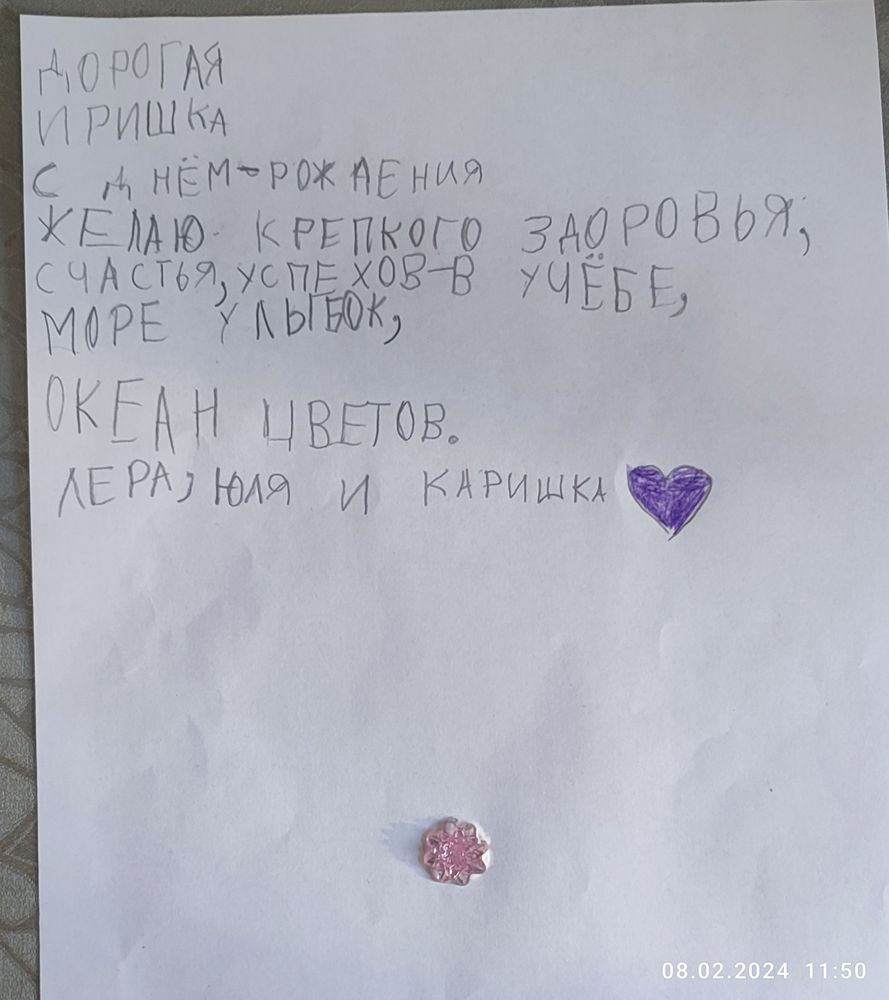 ДОРОГАЯ
ИРИШКА
С ДНЁМ-РОЖДЕНИЯ
ЖЕЛАЮ КРЕПКОГО ЗДОРОВЬЯ,
СЧАСТЬЯ, УСПЕХОВ-В УЧЁБЕ,
МОРЕ УЛЫБОК,
ОКЕАН ЦВЕТОВ.
ЛЕРА, ЮЛЯ И КАРИШКА
08.02.2024 11:50